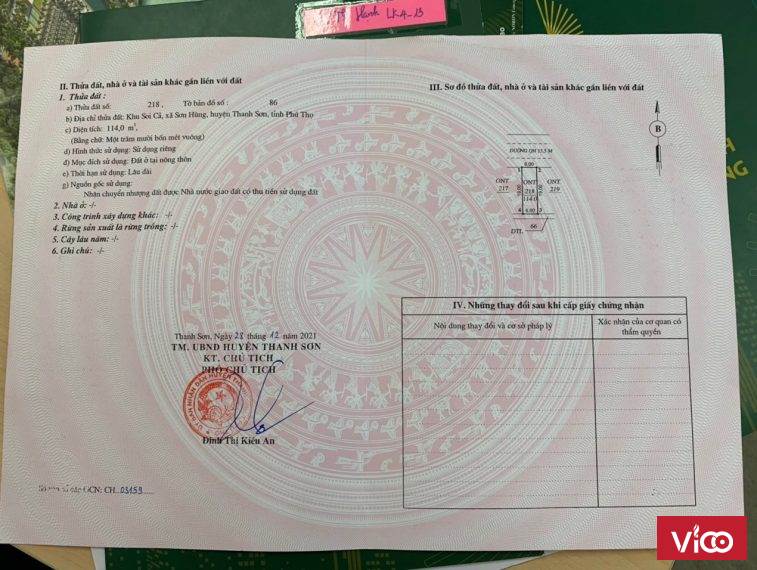 Hanh LK4_13
II. Thửa đất, nhà ở và tài sản khác gắn liền với đất
1. Thửa đất :
a) Thửa đất số: 218 , Tờ bản đồ số : 86
b) Địa chỉ thửa đất: Khu Soi Cả, xã Sơn Hùng, huyện Thanh Sơn, tỉnh Phú Thọ
c) Diện tích: 114,0 m²,
(Bằng chữ: Một trăm mười bốn mét vuông)
d) Hình thức sử dụng: Sử dụng riêng
đ) Mục đích sử dụng: Đất ở tại nông thôn
e) Thời hạn sử dụng: Lâu dài
g) Nguồn gốc sử dụng:
Nhận chuyển nhượng đất được Nhà nước giao đất có thu tiền sử dụng đất
2. Nhà ở: -/-
3. Công trình xây dựng khác: -/-
4. Rừng sản xuất là rừng trồng: -/-
5. Cây lâu năm: -/-
6. Ghi chú: -/-
Thanh Sơn, Ngày 28 tháng 12 năm 2021
TM. UBND HUYỆN THANH SƠN
KT. CHỦ TỊCH
PHÓ CHỦ TỊCH
Đinh Thị Kiều An
GCN: CH 03159
III. Sơ đồ thửa đất, nhà ở và tài sản khác gắn liền với đất
B
ĐƯỜNG QH 13.5 M
6.00
1 2
ONT ONT ONT
217 218 219
19.00 114.0 19.00
4 6.00 3
66
DTL
IV. Những thay đổi sau khi cấp giấy chứng nhận
Nội dung thay đổi và cơ sở pháp lý
Xác nhận của cơ quan có
thẩm quyền
ViCO